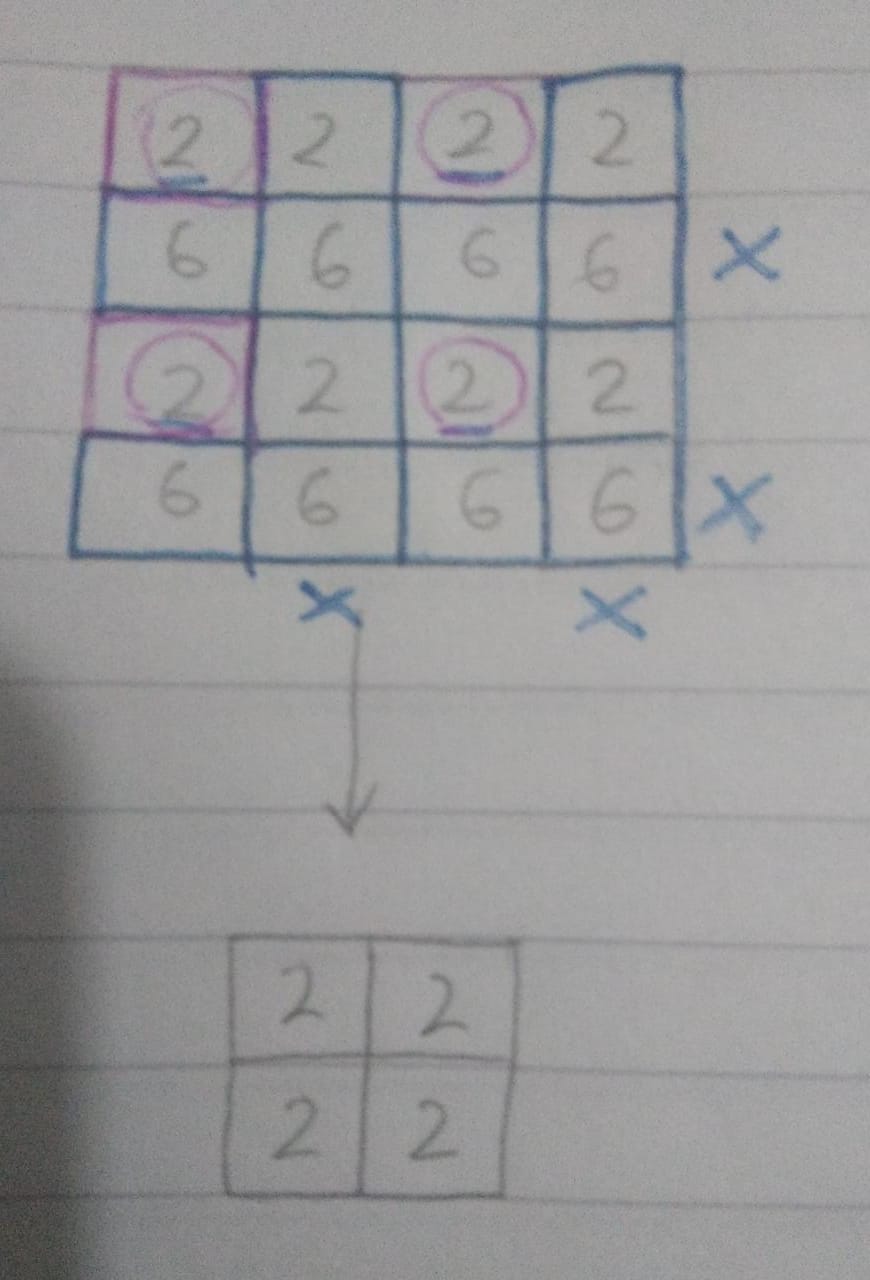 2 2 2 2
6 6 6 6 X
2 2 2 2
6 6 6 6 X
X X
2 2
2 2